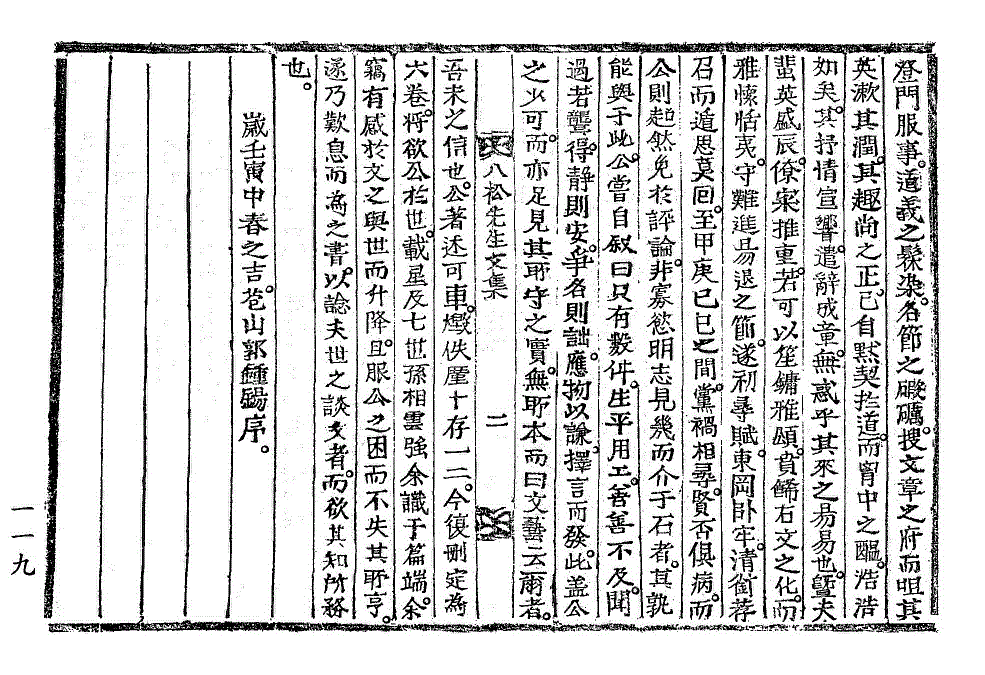 登門服事。道義之髹染。名節之礲礪。搜文章之府而咀其
英漱其潤。其趣尚之正。已自默契於道。而胷中之醞。浩浩
如矣。其抒情宣響。遣辭成章。無惑乎其來之易易也。曁夫
蜚英盛辰。僚寀推重。若可以笙鏞雅頌。賁餙右文之化。而
雅懷恬夷。守難進易退之節。遂初尋賦。東岡卧牢。清銜荐
召而遁思莫回。至甲庚己巳之間。黨禍相尋。賢否俱病。而
公則超然免於評論。非寡慾明志見幾而介于石者。其孰
能與于此。公嘗自叙曰只有數件。生平用工。善善不及。聞
過若聾。得靜則安。爭名則詘。應物以謙。擇言而發。此盖公
之少可。而亦足見其所守之實。無所本而曰文藝云爾者。
八松先生文集 二
吾未之信也。公著述可車。燬佚厪十存一二。今復刪定為
六卷。将欲公於世。載星及七世孫相雲強余識于篇端。余
竊有感於文之與世而升降。且服公之困而不失其所亨。
遂乃歎息而為之書。以諗夫世之談文者。而欲其知所務
也。
歲壬寅中春之吉。苞山郭鍾錫序。
一一九